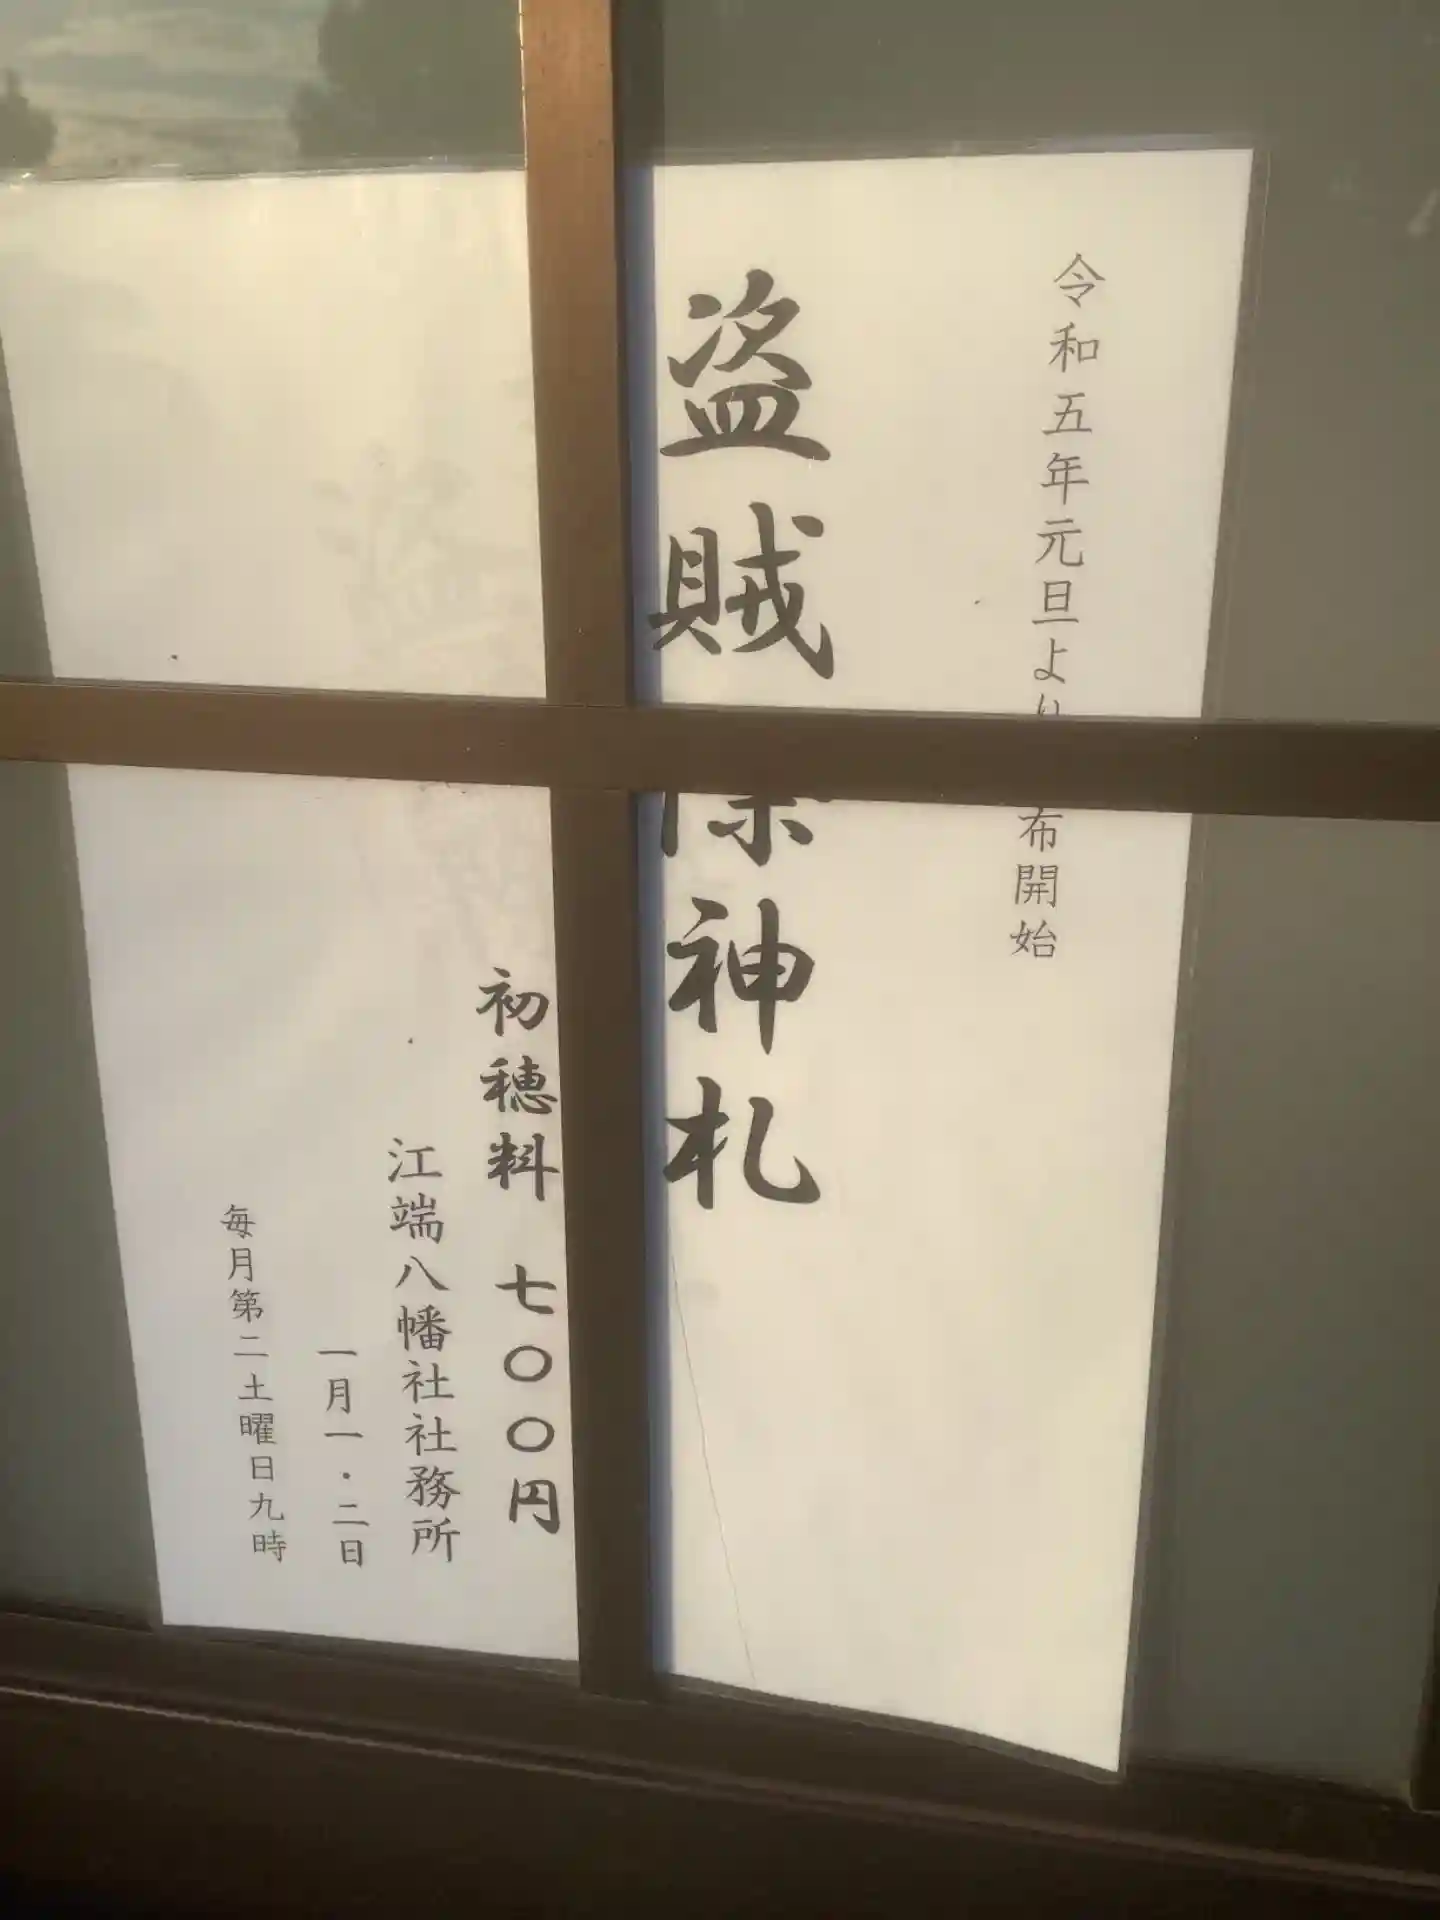 令和五年元旦より布開始
盗賊除神札
初穂料 七〇〇円
江端八幡社社務所
一月一・二日
毎月第二土曜日九時